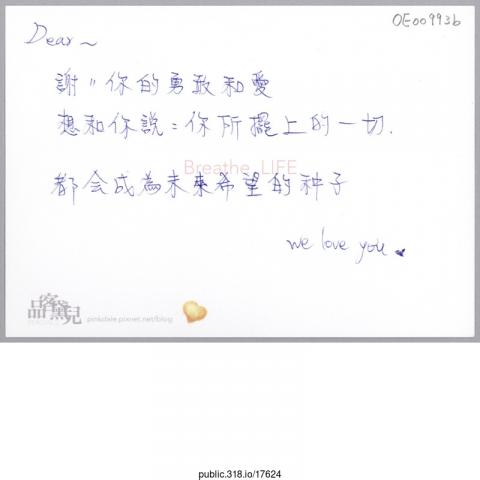 OE00993b
Dear~
謝〃你的勇敢和愛
想和你說：你所擺上的一切.
Breathe LIFE
都会成為未來希望的种子
we love you
品客黛兒
pinkdale.pixnet.net/blog
public.318.io/17624